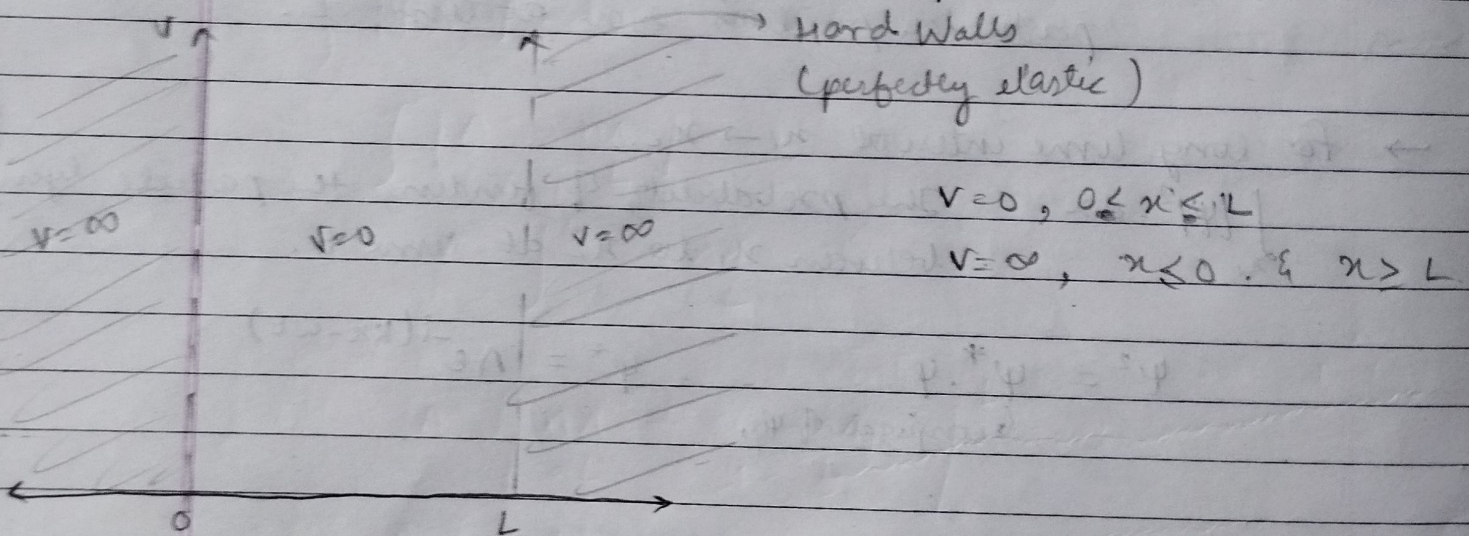 V
→ Hard Walls
(perfectly elastic)
V=0, 0≤x≤L
V=∞ V=0 V=∞
V=∞, x≤0. & x≥L
0 L